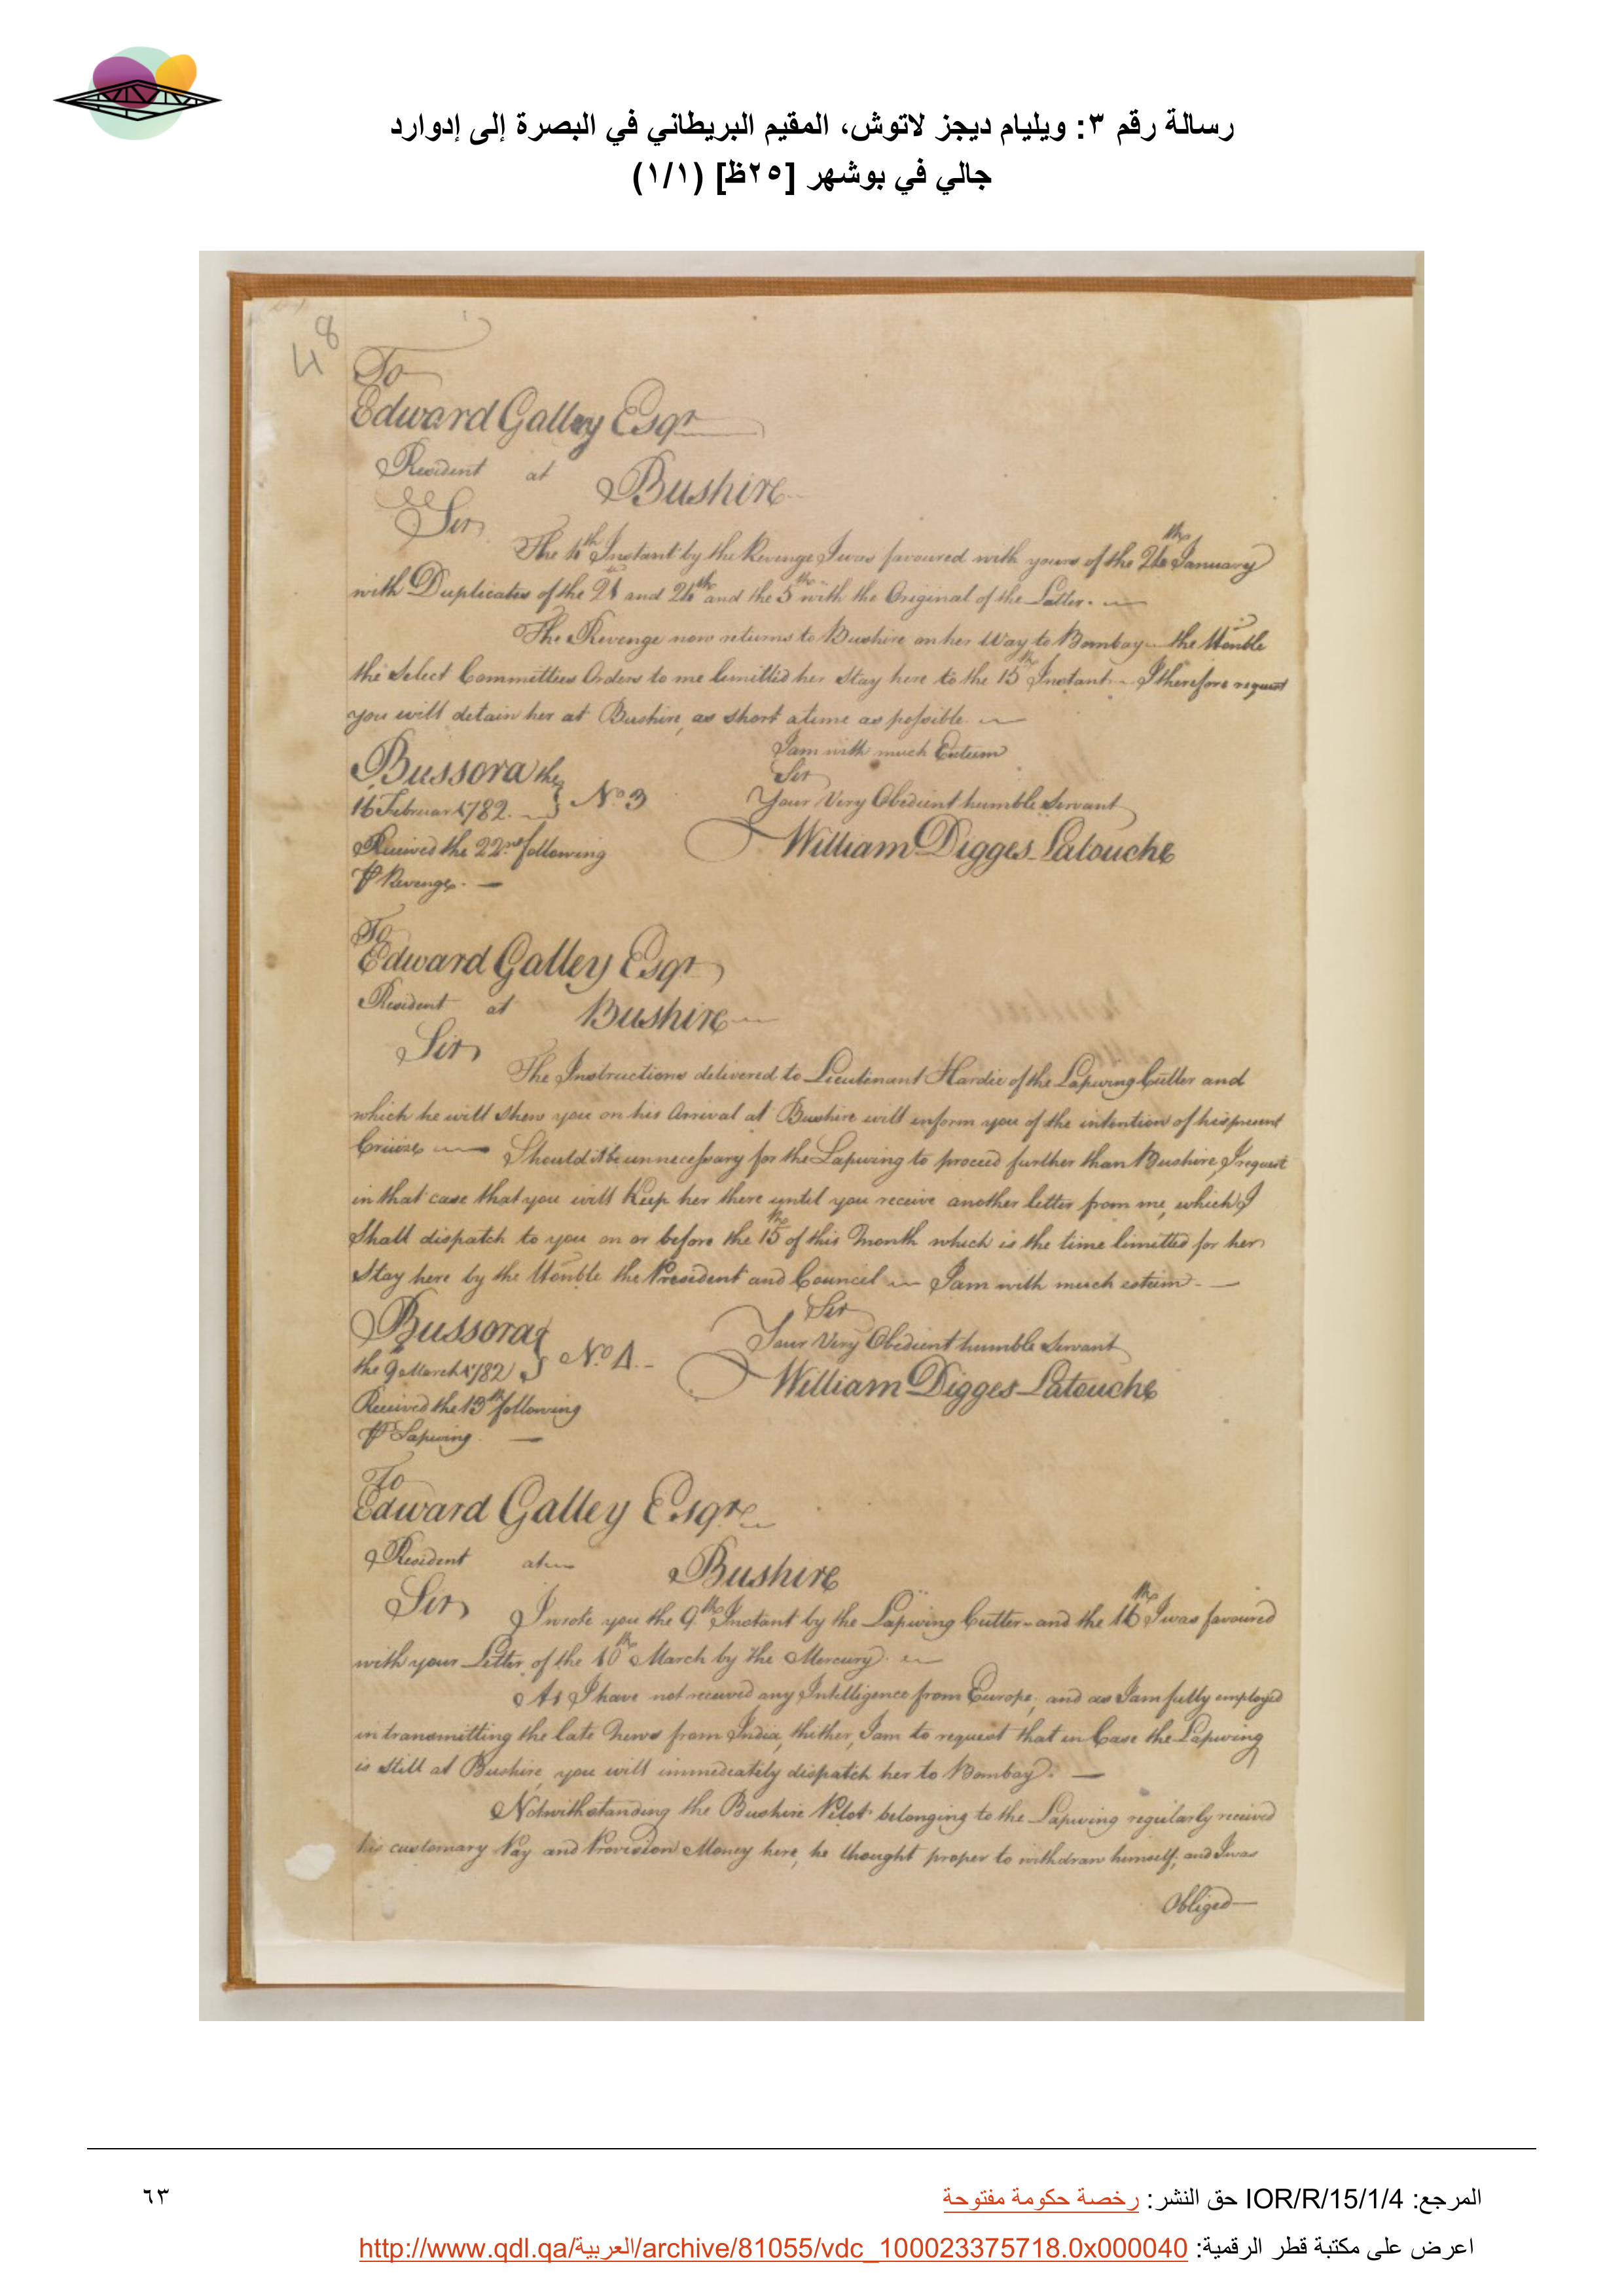 رسالة رقم ٣: ويليام ديجز لاتوش، المقيم البريطاني في البصرة إلى إدوارد
جالي في بوشهر [٢٥ظ] (١/١)
48
To
Edward Galley Esqr
Resident at Bushire
Sir
The 4th Instant by the Revenge I was favoured with yours of the 24th January
with Duplicates of the 21 and 24th and the 5th with the Original of the Latter.
The Revenge now returns to Bushire on her Way to Bombay the Honble
the Select Committees Orders to me limitted her Stay here to the 15th Instant I therefore request
you will detain her at Bushire, as short a time as possible
I am with much Esteem
Sir
Your Very Obedient humble Servant
William Digges Latouche
Bussora the
16 Februar 1782. No 3
Received the 22nd following
Revenge.
To
Edward Galley Esqr
Resident at Bushire
Sir
The Instructions delivered to Lieutenant Hardie of the Lapwing Cutter and
which he will shew you on his Arrival at Bushire will inform you of the intention of his present
Cruize Should it be unnecessary for the Lapwing to proceed further than Bushire, I request
in that case that you will keep her there until you receive another letter from me, which I
Shall dispatch to you on or before the 15th of this Month which is the time limitted for her
Stay here by the Honble the President and Council I am with much esteem
Sir
Your Very Obedient humble Servant
William Digges Latouche
Bussora
the 9 March 1782 No 4.
Received the 13th following
Lapwing
To
Edward Galley Esqre
Resident at Bushire
Sir I wrote you the 9th Instant by the Lapwing Cutter and the 16th I was favoured
with your Letter of the 10th March by the Mercury.
As I have not received any Intelligence from Europe, and as I am fully employed
in transmitting the late News from India, thither, I am to request that in Case the Lapwing
is still at Bushire, you will immediately dispatch her to Bombay.
Notwithstanding the Bushire Pilot belonging to the Lapwing regularly received
his customary Pay and Provision Money here, he thought proper to withdraw himself, and I was
Obliged
المرجع: IOR/R/15/1/4 حق النشر: رخصة حكومة مفتوحة
٦٣
اعرض على مكتبة قطر الرقمية: http://www.qdl.qa/العربية/archive/81055/vdc_100023375718.0x000040